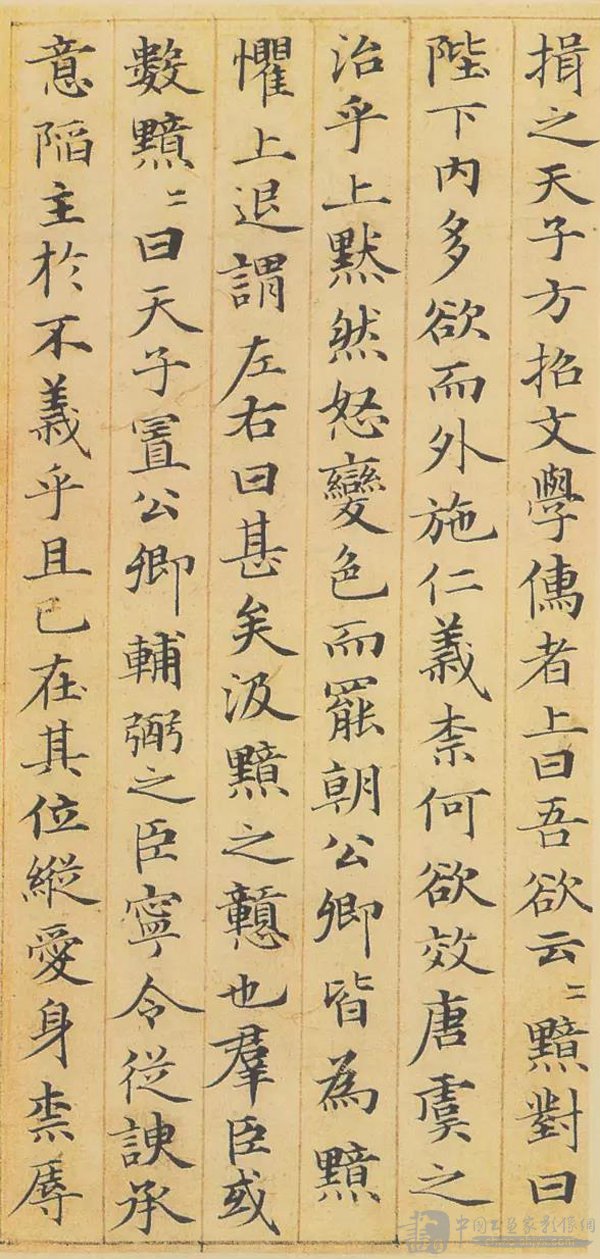 揖之天子方招文學儒者上曰吾欲云〻黯對曰
陛下內多欲而外施仁義柰何欲效唐虞之
治乎上默然怒變色而罷朝公卿皆為黯
懼上退謂左右曰甚矣汲黯之戇也羣臣或
數黯〻曰天子置公卿輔弼之臣寧令從諛承
意陷主於不義乎且已在其位縱愛身柰辱
中国书画家影像網